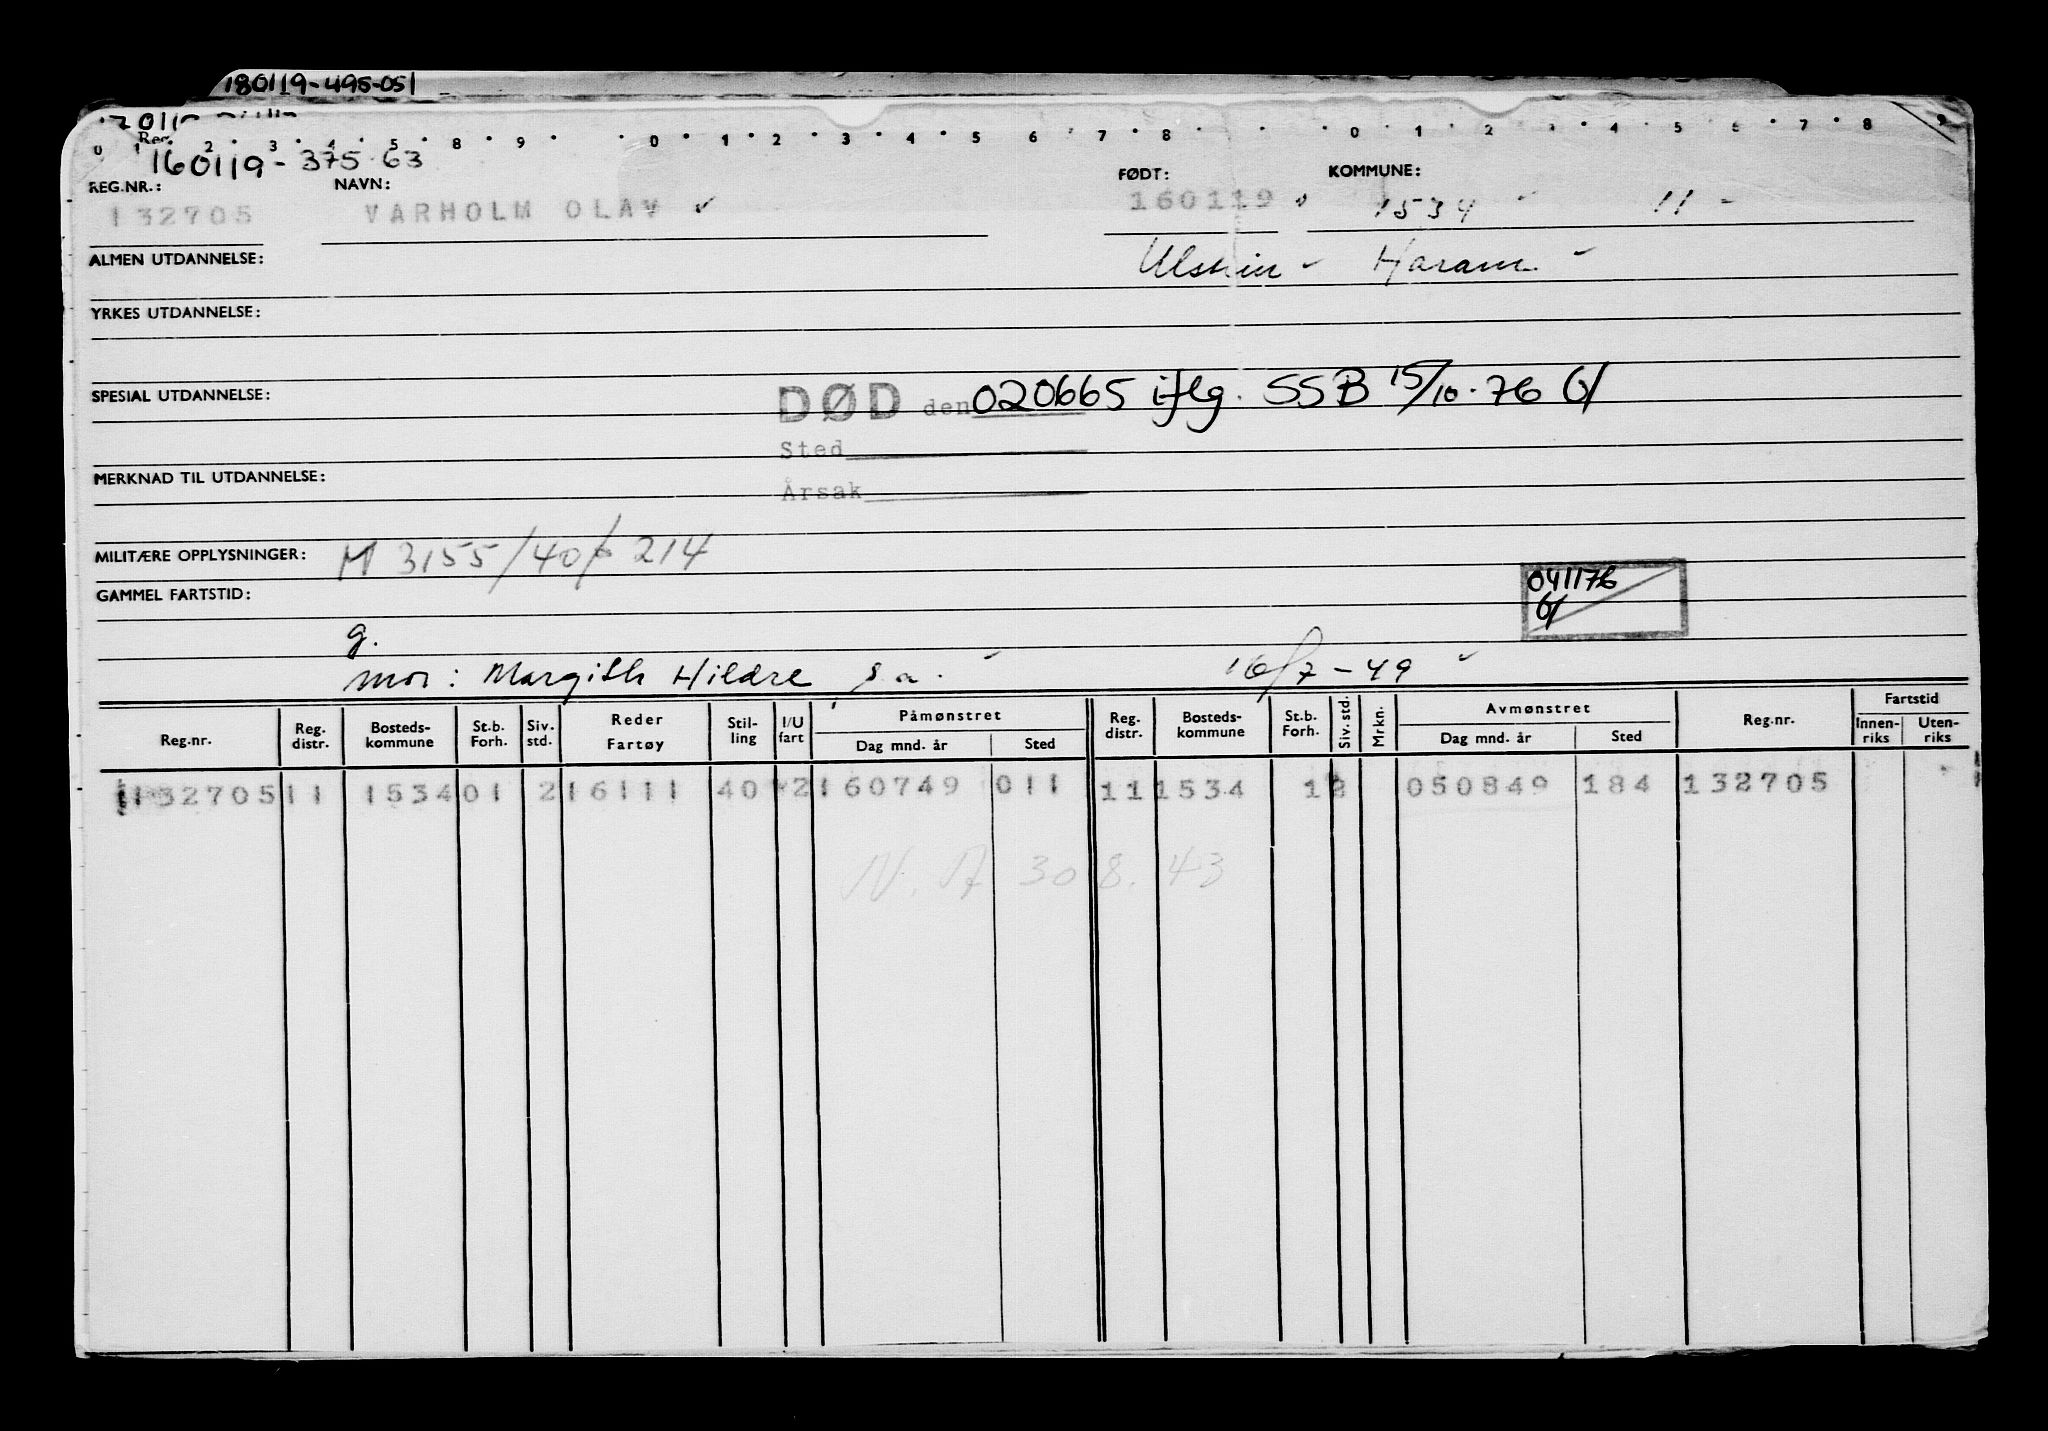 180119-495-051
0 1 2 3 4 5 8 9 0 1 2 3 4 5 6 7 8 0 1 2 4 5 6 7 8 9
160119-375 63
REG.NR.: NAVN: FØDT: KOMMUNE:
132705 VARHOLM OLAV ✓ 160119 1534 11 -
ALMEN UTDANNELSE: Ulstein - Haram -
YRKES UTDANNELSE:
SPESIAL UTDANNELSE: DØD den 020665 iflg. SSB 15/10-76
Sted
MERKNAD TIL UTDANNELSE:
Årsak
MILITÆRE OPPLYSNINGER: M 3155/40 214
041176
GAMMEL FARTSTID:
g.
mor: Margith Hildre s.a. 16/7-49
Reg.nr. Reg. distr. Bosteds-kommune St.b. Forh. Siv. std. Reder Fartøy Stil-ling I/U fart Påmønstret Dag mnd. år Sted Reg. distr. Bosteds-kommune St.b. Forh. Siv. std. Mrkn. Avmønstret Dag mnd. år Sted Reg.nr. Fartstid Innen-riks Uten-riks
132705 11 1534 01 2 16111 40 2 160749 011 11 1534 1 2 050849 184 132705
N. A 30 8. 43